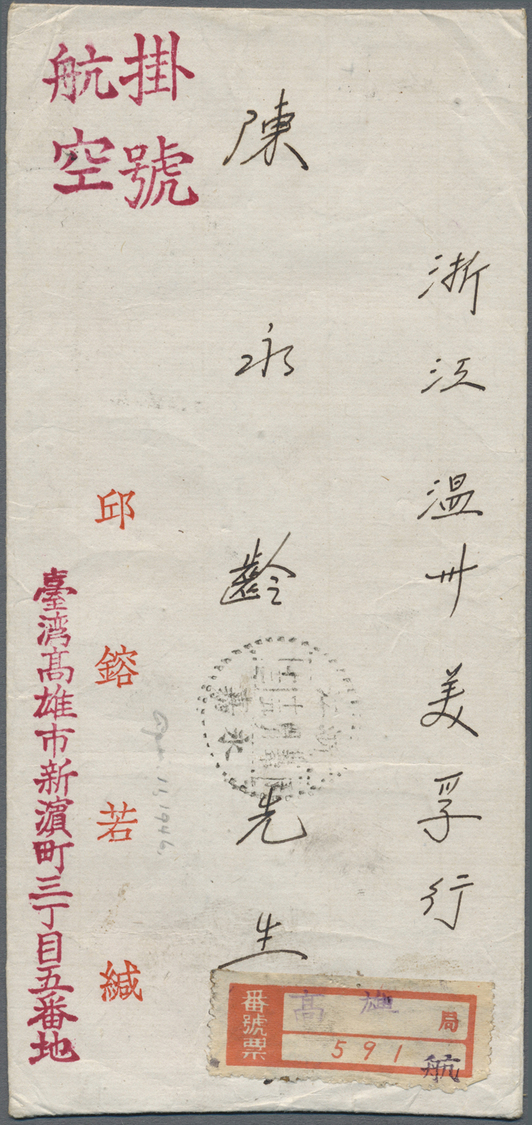 掛號
航空
浙江溫州美孚行
陳永齡先生
邱鎔若緘
臺湾高雄市新濵町三丁目五番地
番號票
高雄局
591
航